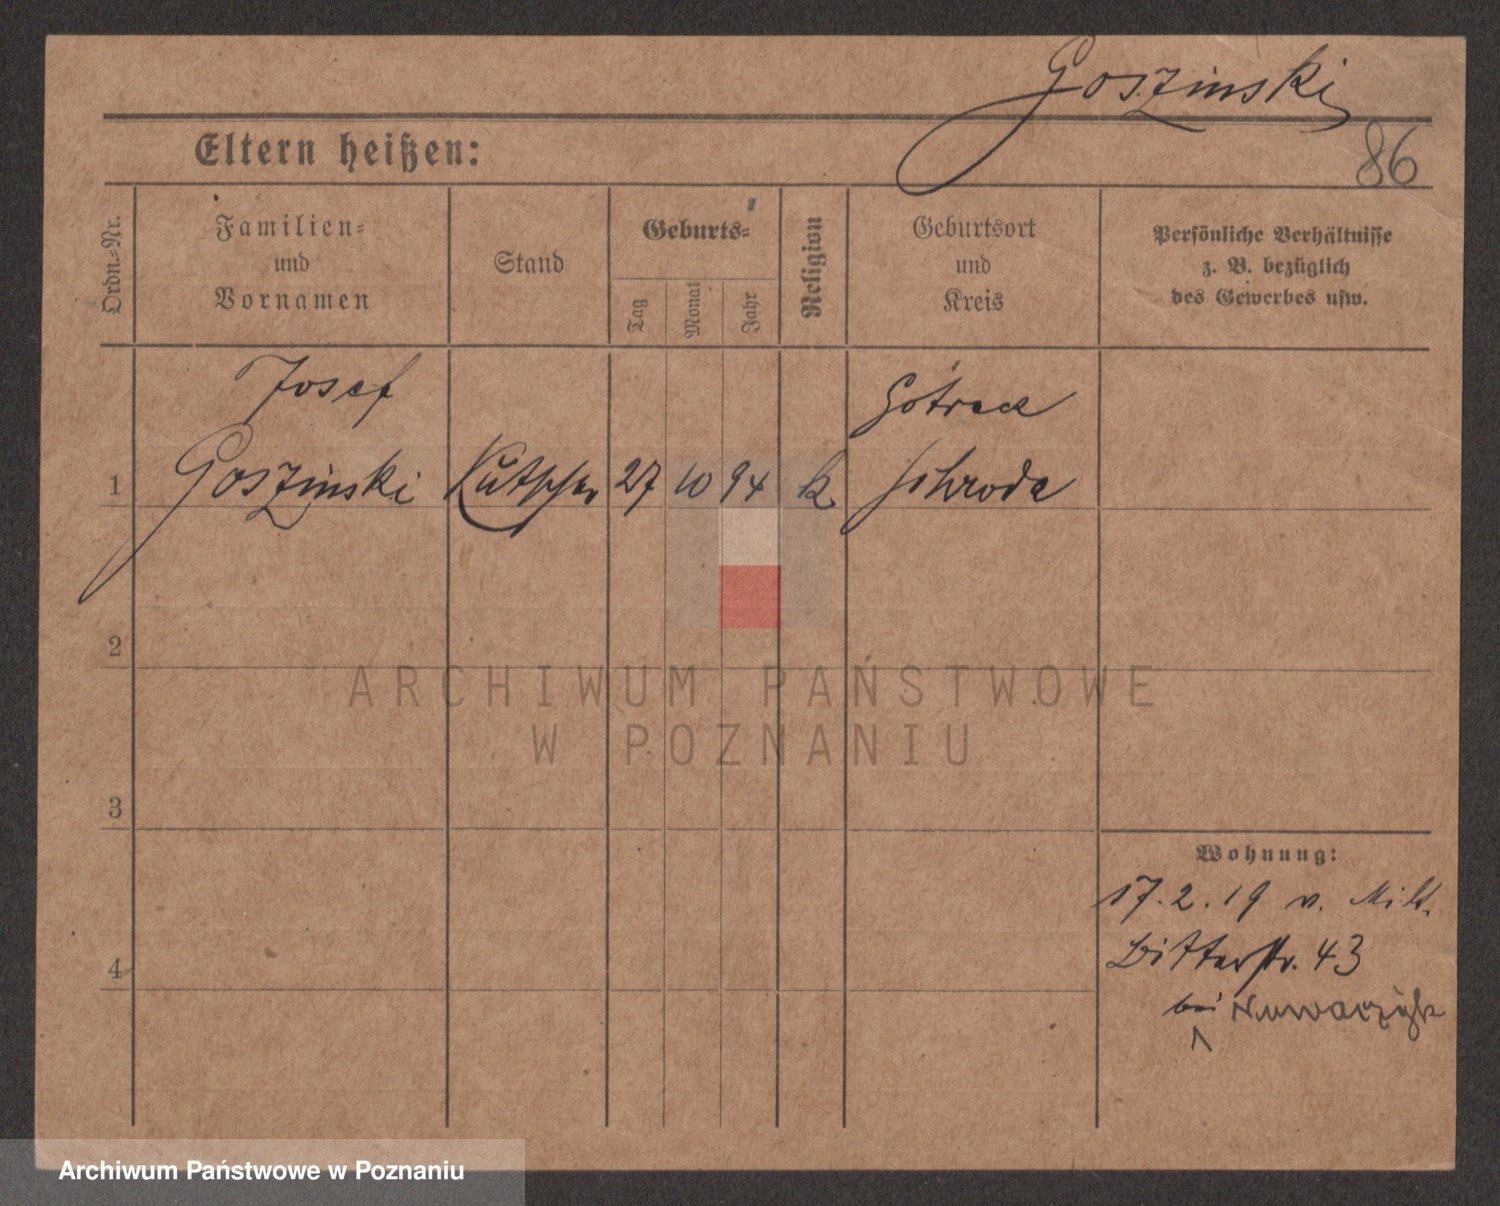 Goszinski
Eltern heißen:
86
Ordn.-Nr.
Familien-
und
Vornamen
Stand
Geburts-
Tag
Monat
Jahr
Religion
Geburtsort
und
Kreis
Persönliche Verhältnisse
z. B. bezüglich
des Gewerbes usw.
Josef
1 Goszinski Kutscher 27 10 94 k Schroda
2
3
4
Wohnung:
17.2.19 v. Milt.
Bitterstr. 43
bei
ARCHIWUM PAŃSTWOWE
W POZNANIU
Archiwum Państwowe w Poznaniu